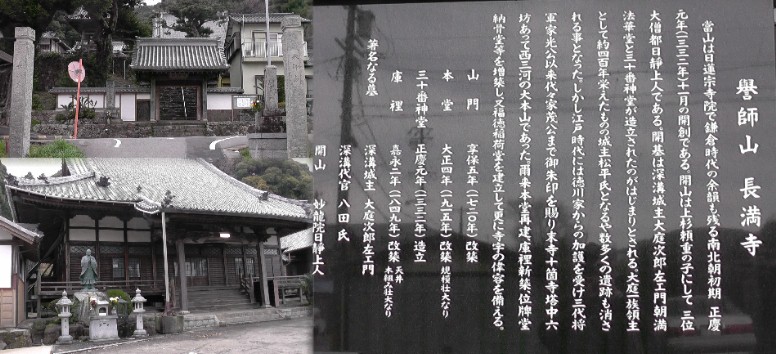 譽師山 長満寺
當山は日蓮宗寺院で鎌倉時代の余韻を残る南北朝初期 正慶
元年(一三三二年)十一月の開創である。開山は上杉頼重の子にして 三位
大僧都日静上人である。開基は深溝城主大庭次郎左ヱ門朝満
法華堂と三十番神堂が造立されたのがはじまりとされる。大庭一族領主
として約四百年栄えたもの城主松平氏となるや数多くの遺跡も消さ
れる事となった。しかし江戸時代には徳川家からの加護を受け三代将
軍家光公以来代々家茂公まで御朱印を賜り末寺十箇寺塔中六
坊あって西三河の大本山であった。爾来本堂再建庫裡新築、位牌堂
納骨堂等を増築し、又福徳稲荷堂を建立して更に寺宇の偉容を備える。
山門 享保五年(一七二〇年)改築
本堂 大正四年(一九一五年)改築 規模壮大なり
三十番神堂 正慶元年(一三三二年)造立
庫裡 嘉永二年(一八四九年)改築 天井木組み壮大なり
著名なる墓
深溝城主 大庭次郎左ヱ門
深溝代官 八田氏
開山 妙龍院日静上人